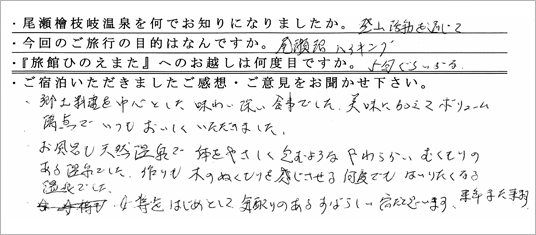 ・尾瀬檜枝岐温泉を何でお知りになりましたか。登山活動を通じて
・今回のご旅行の目的はなんですか。尾瀬沼ハイキング
・『旅館ひのえまた』へのお越しは何度目ですか。
・ご宿泊いただきましたご感想・ご意見をお聞かせ下さい。
・郷土料理を中心とした味わい深い食事でした。美味に加えてボリューム
満点でいつもおいしくいただきました。
・お風呂も天然温泉で体をやさしく包むようなやわらかいぬくもりの
ある温泉でした。作りも木のぬくもりを感じさせる何度でもはいりたくなる
温泉でした。
・女将をはじめとして気配りのあるすばらしい宿でございます。来年また来ます